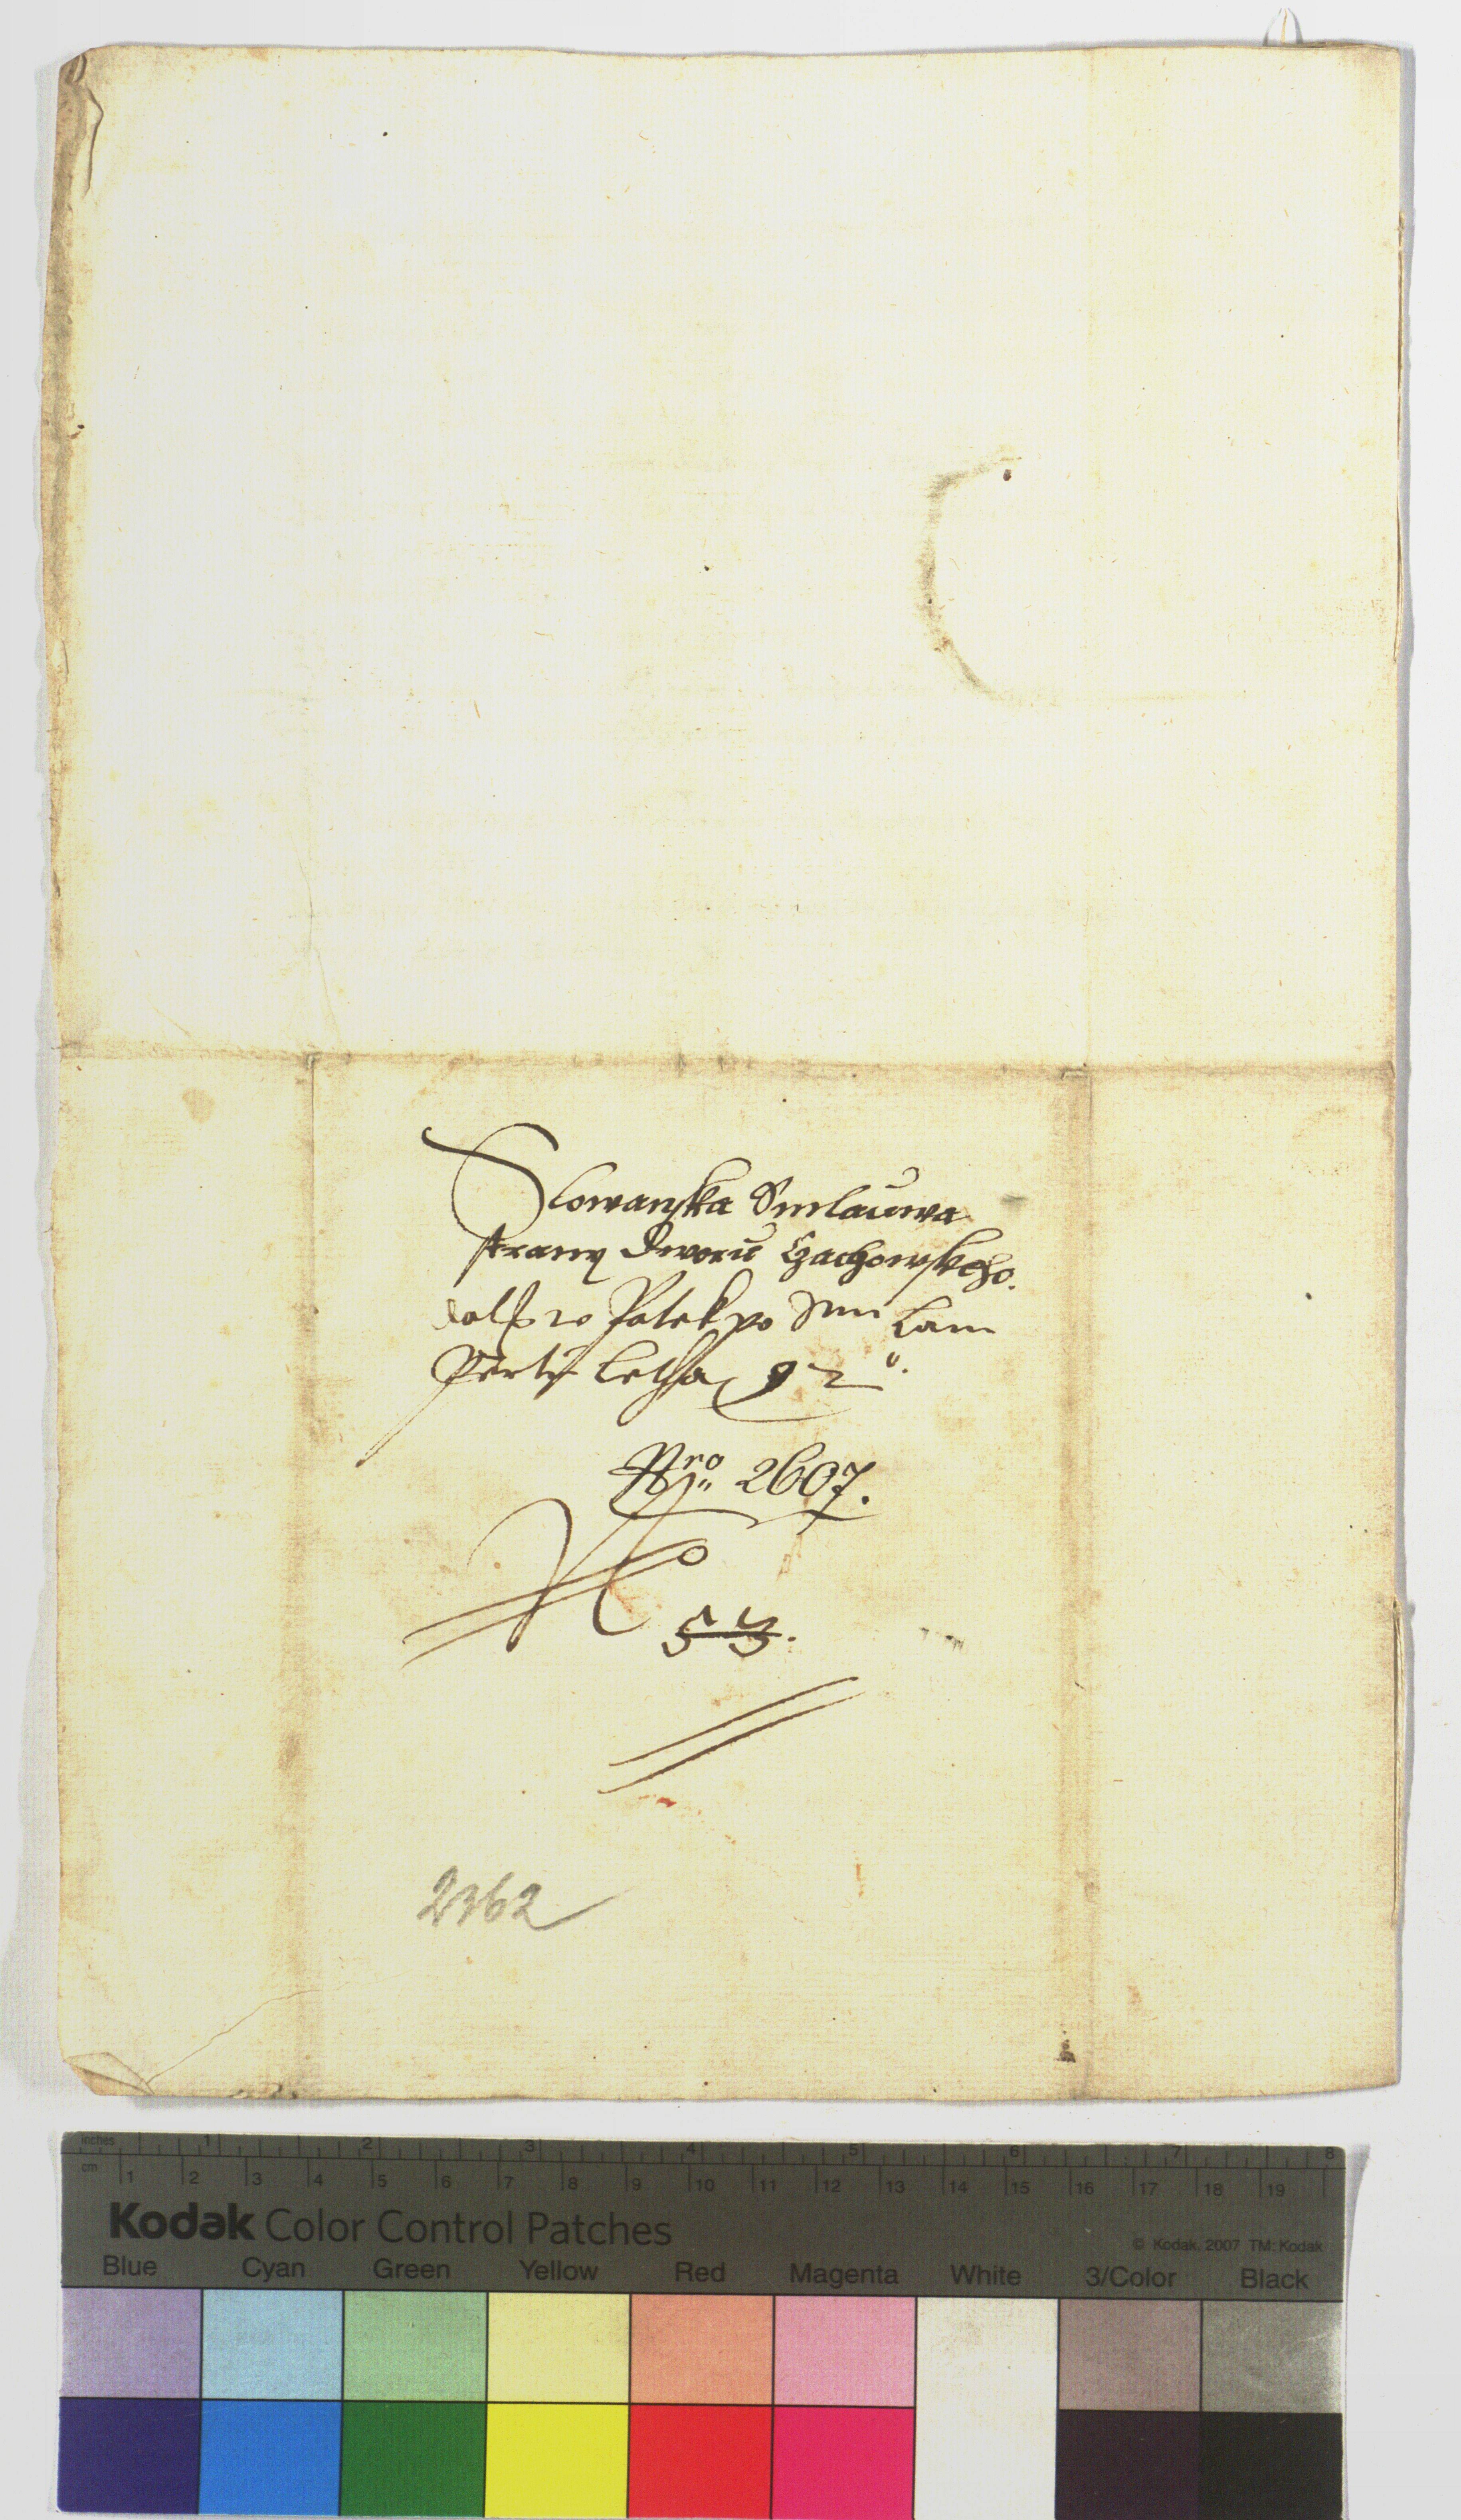 Slowanska Smlauwa
strany Dworu Hachowskeho.
Patek po
Perti Letha 92
Nro 2607.
No 53.
2362
inches 1 2 3 4 5 6 7 8
cm 1 2 3 4 5 6 7 8 9 10 11 12 13 14 15 16 17 18 19
Kodak Color Control Patches
© Kodak, 2007 TM: Kodak
Blue Cyan Green Yellow Red Magenta White 3/Color Black